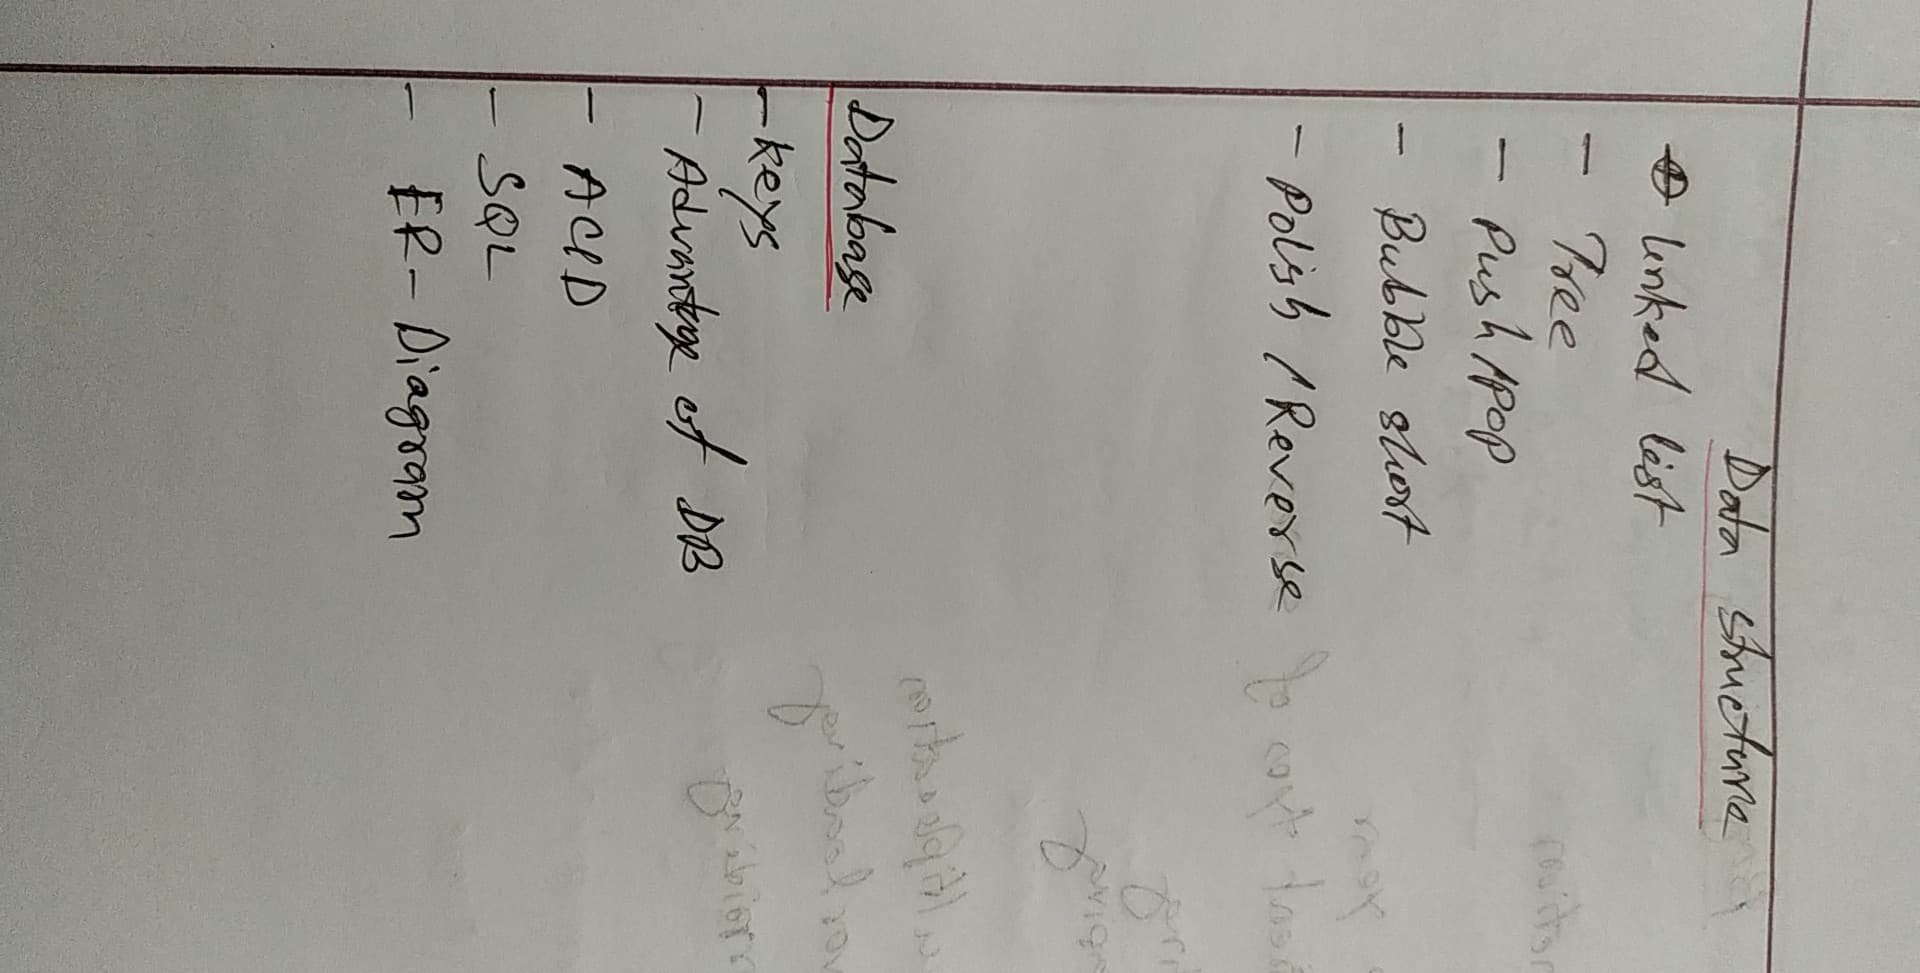 Data structure
linked list
- Tree
- Push / POP
- Bubble short
- Polish / Reverse
Database
- keys
- Advantage of DB
- ACID
- SQL
- ER - Diagram